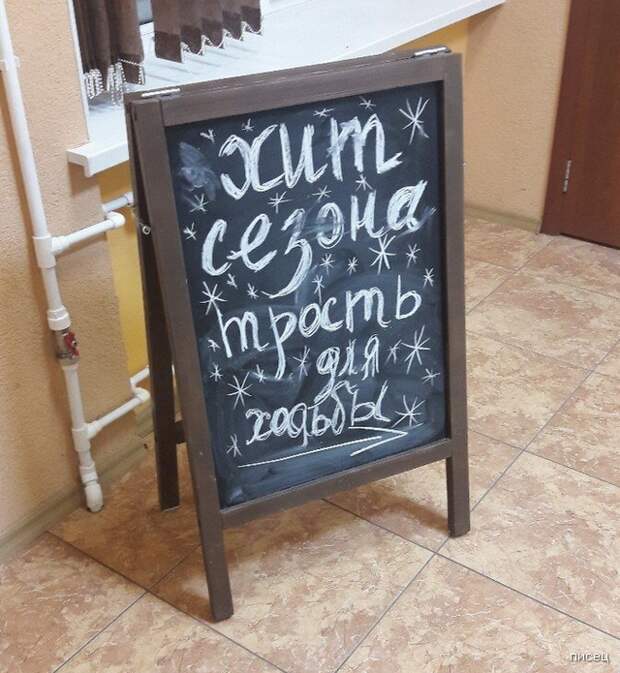 хит
сезона
трость
для
ходьбы
писец